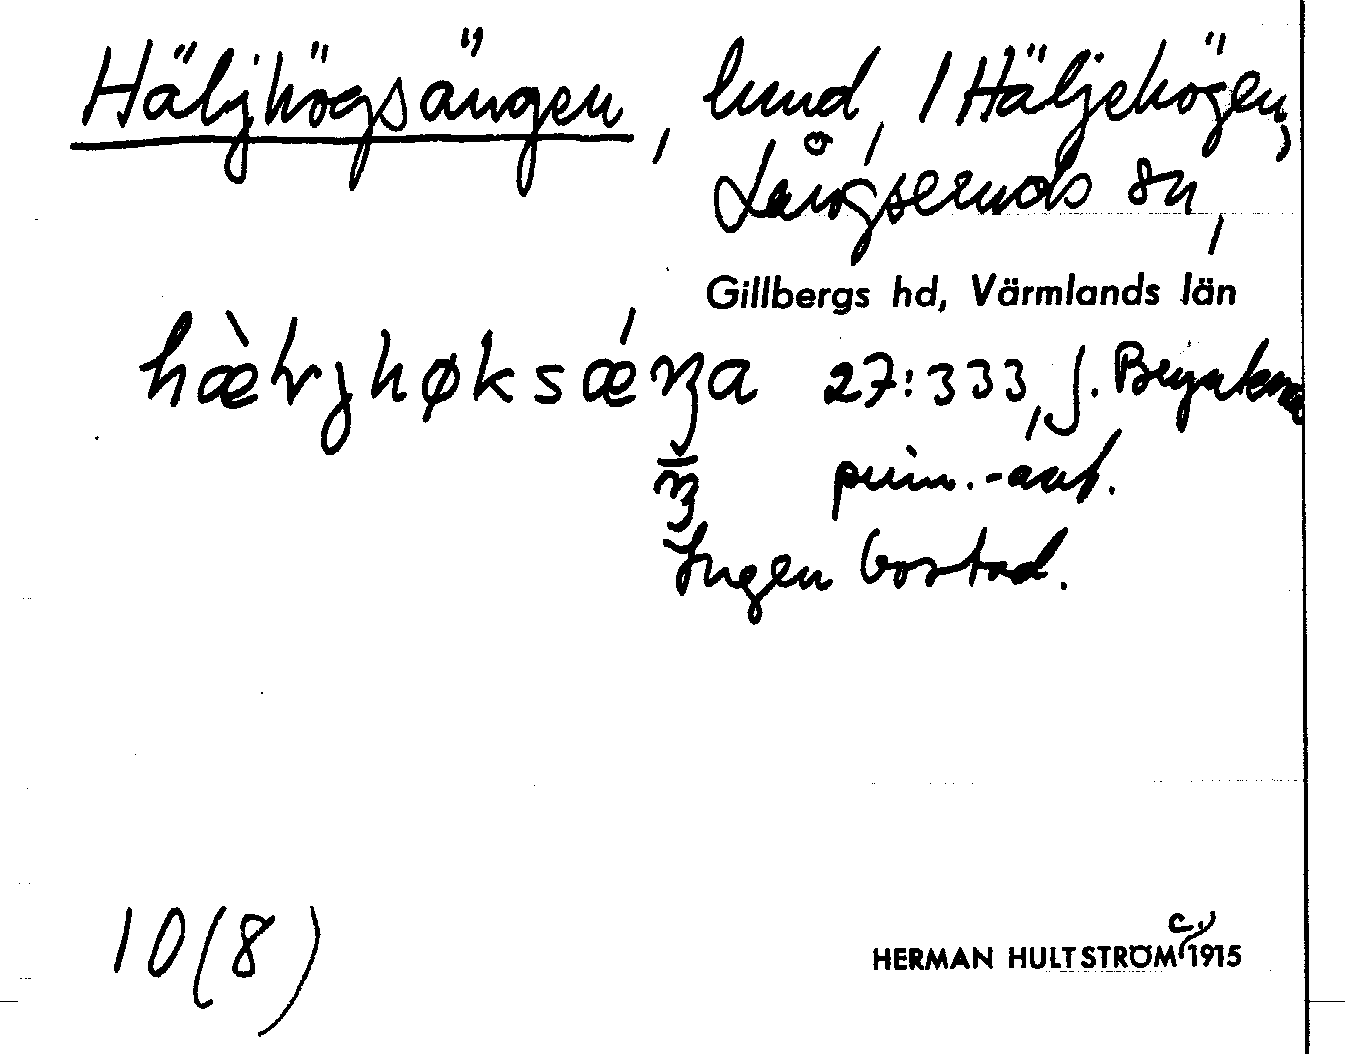 Häljhögsängen, lund, 1 Häljehögen,
Långseruds sn,
Gillbergs hd, Värmlands län
27:333, J.
prim.-ant.
Ingen bostad.
10(8)
HERMAN HULTSTRÖM 1915